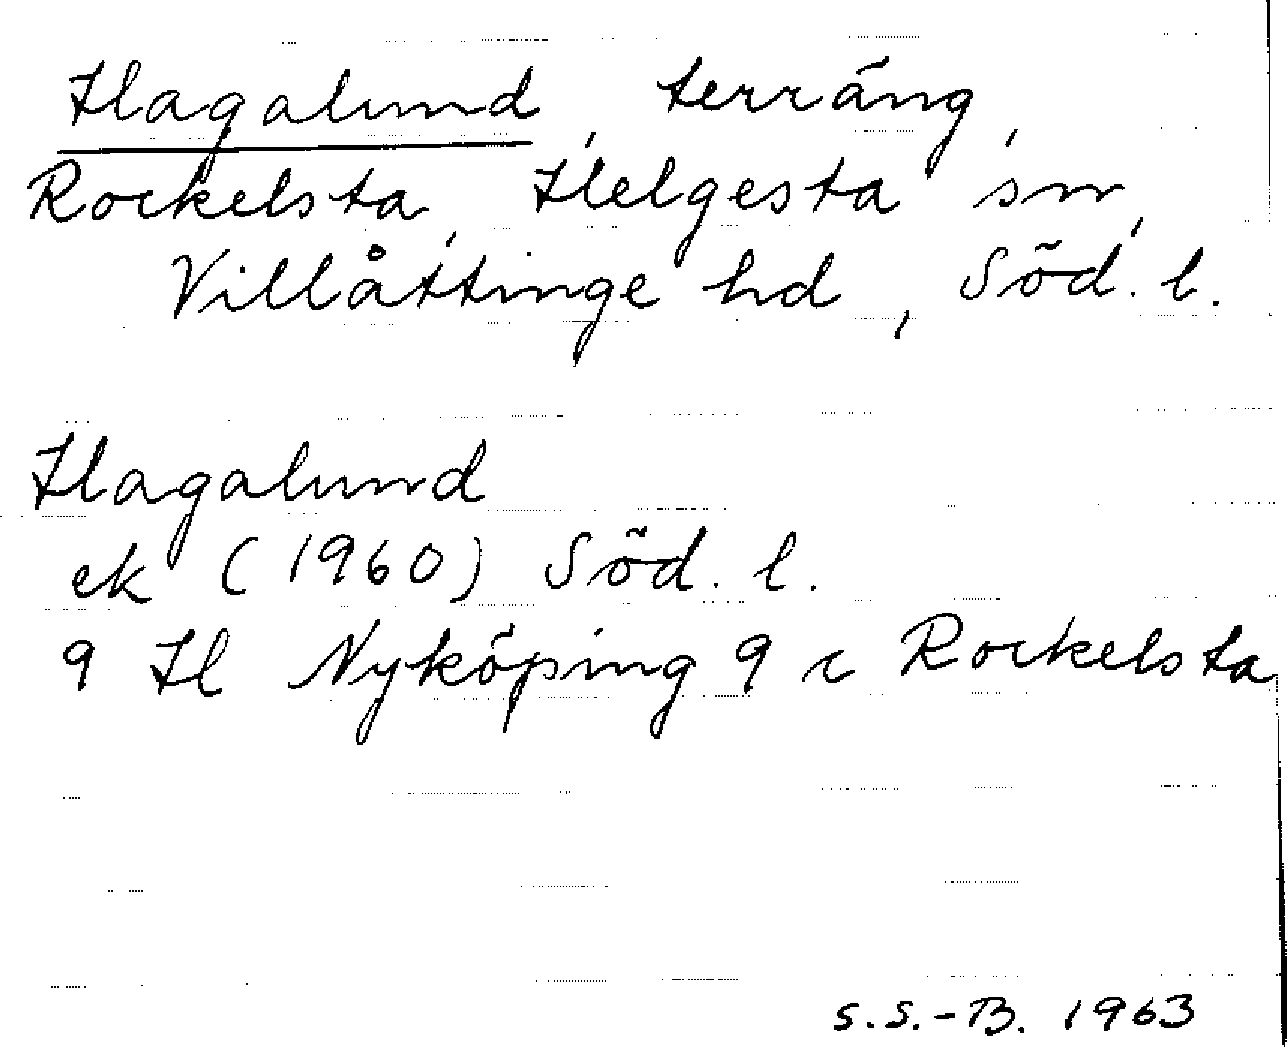 Hagalund, terräng,
Rockelsta, Helgesta sn,
Villåttinge hd, Söd. l.
Hagalund
ek (1960) Söd. l.
9 H Nyköping 9 c Rockelsta
S.S.-B. 1963